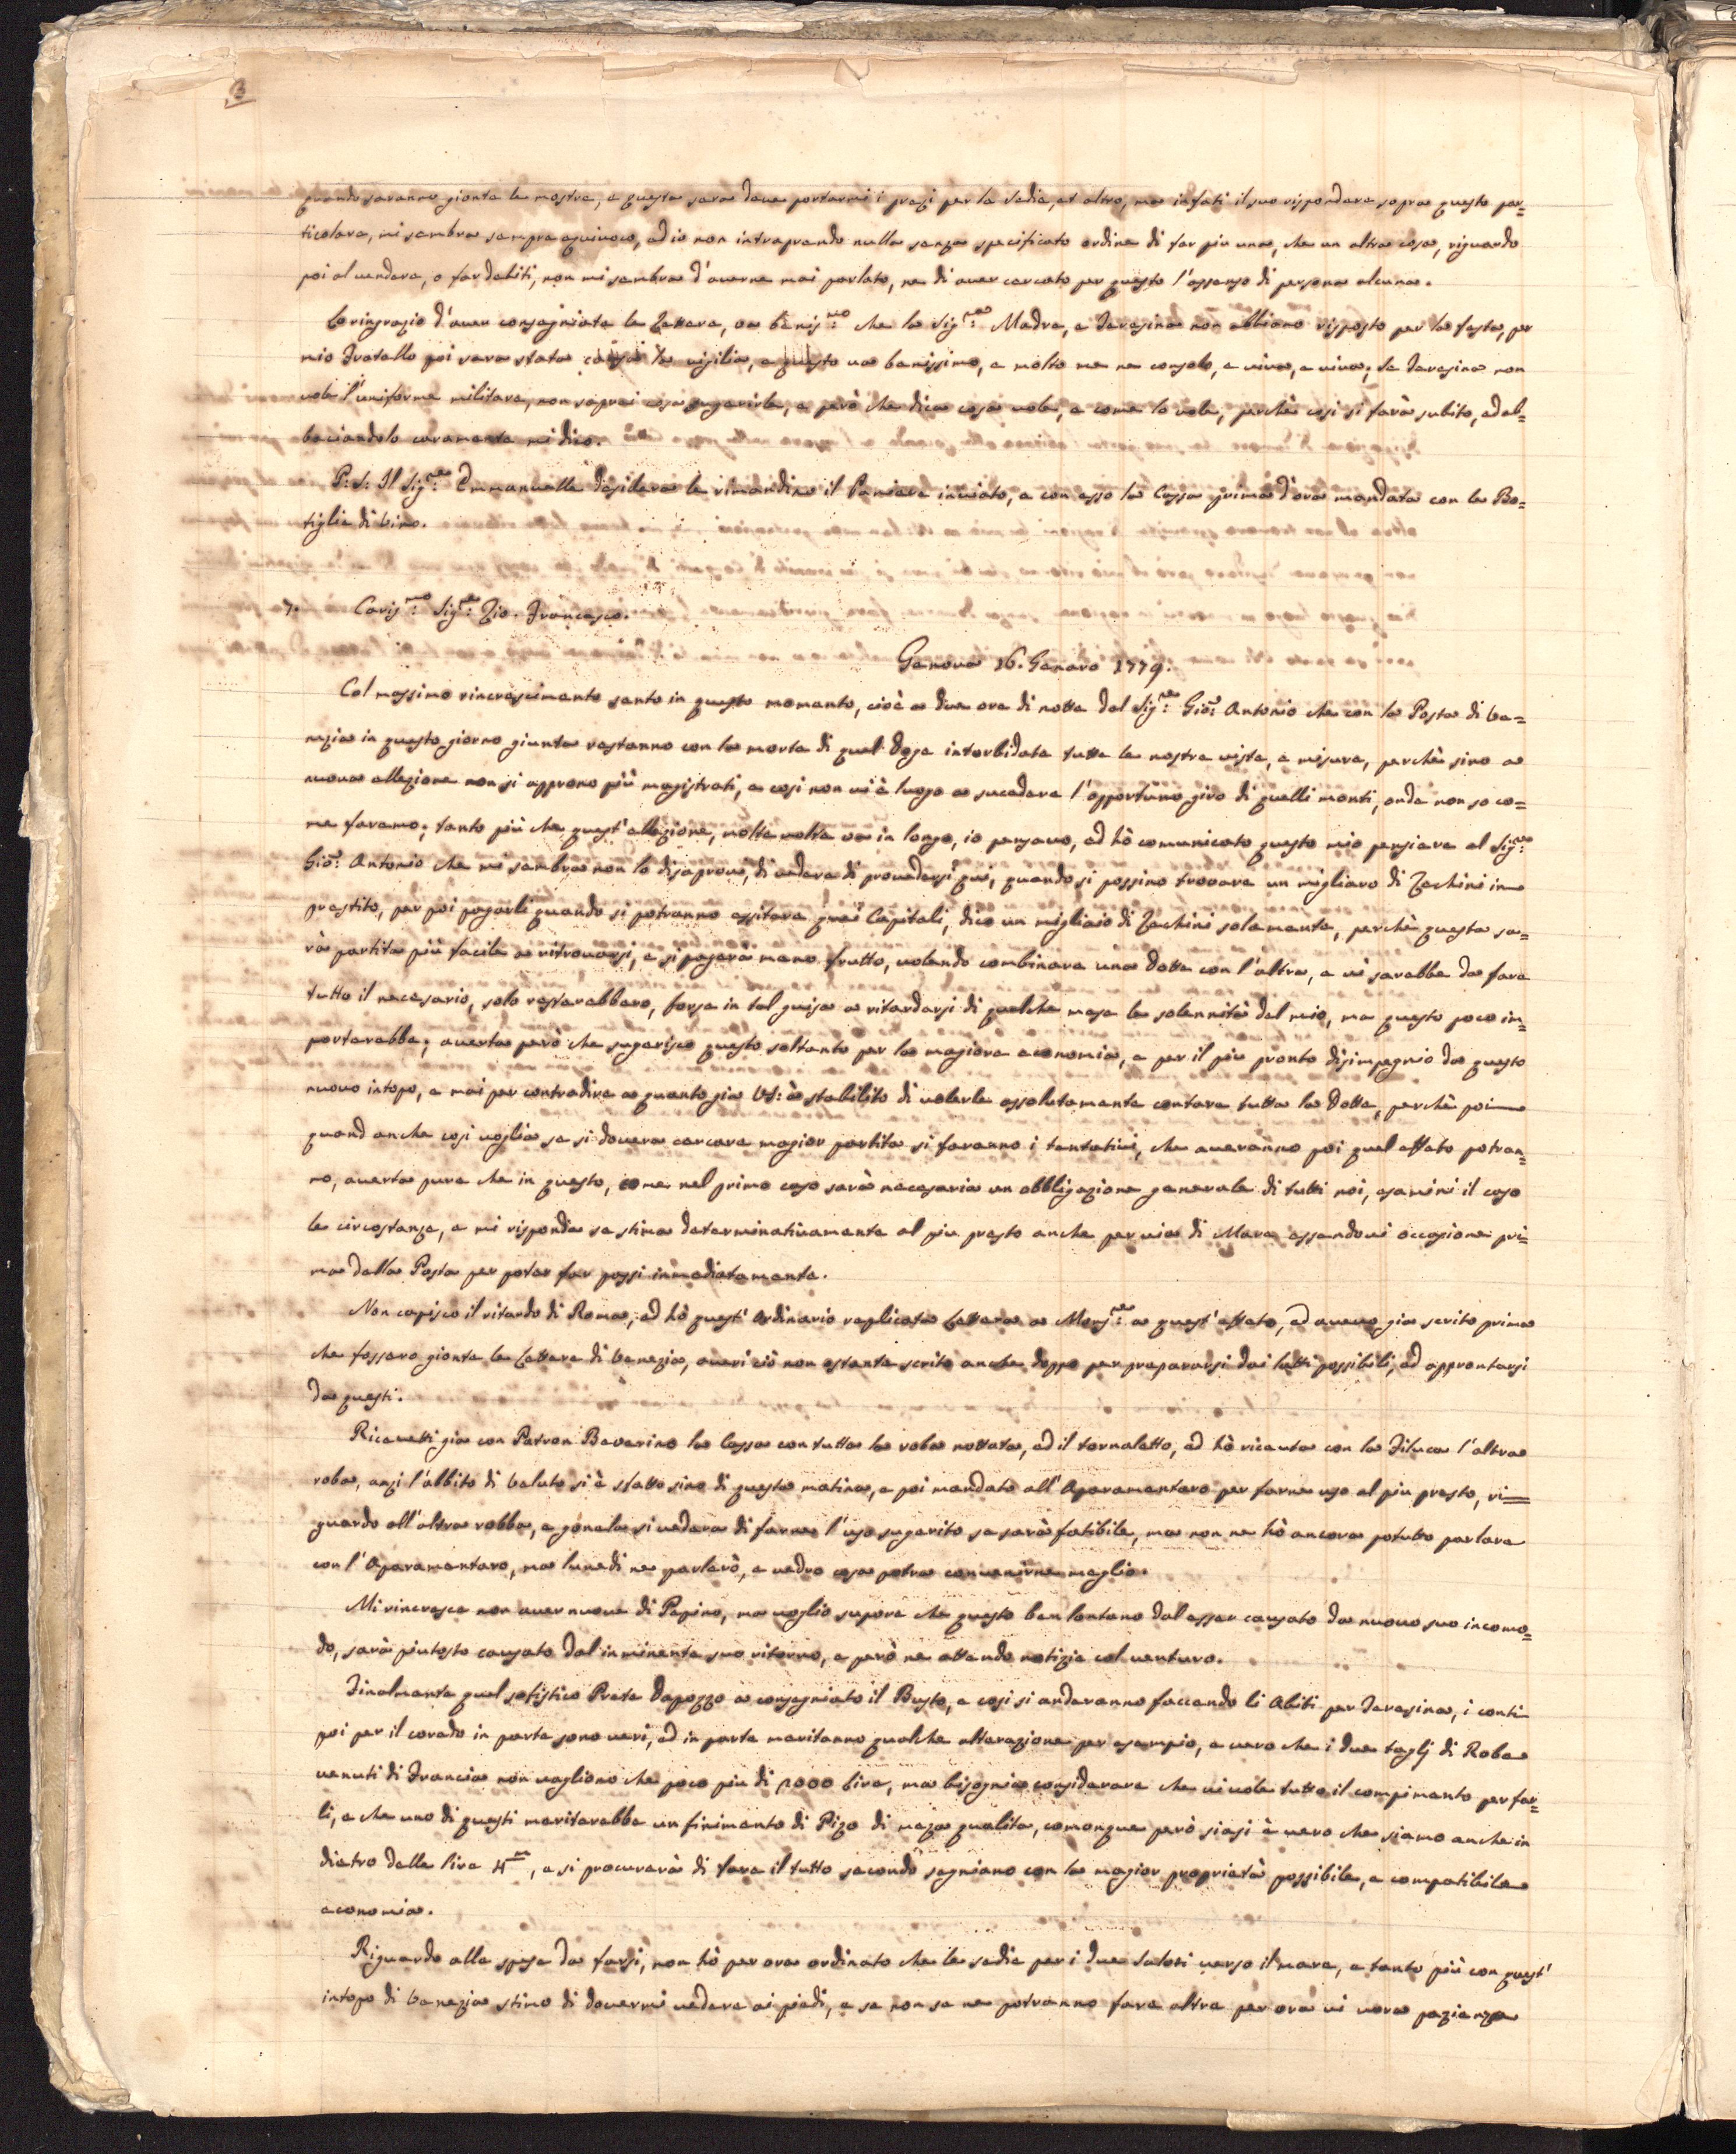 3
quando saranno gionte le mostre, e questa sera deve portarmi i prezzi per la sedia, et altro, ma infati il suo rispondere sopra questo par=
ticolare, mi sembra sempre equivoco, ed io non intraprendo nulla senza specificato ordine di far più una, che un altra cosa, riguardo
poi al vendere, o far debiti, non mi sembra d'averne mai parlato, ne di aver cercato per questo l'assenso di persona alcuna.
La ringrazio d'aver consegniate le Lettere, va benis:mo che la Sig:ra Madre, e Teresina non abbiano risposto per la festa, per
mio Fratello poi sara stata causa la vigilia, e questo va benissimo, e molto me ne consolo, e viva, e viva; se Teresina non
vole l'uniforme militare, non saprei cosa sugerirle, e però che dica cosa vole, e come lo vole, perchè cosi si farà subito, ed ab=
baciandolo caramente mi dico.
P: S: Il Sig:re Emmanuelle desidera le rimandino il Paniere inviato, e con esso la Cassa prima d'ora mandata con le Bo=
tiglie di Vino.
7. Caris:mo Sig:re Zio. Francesco.
Genova 16. Genaro 1779.
Col massimo rincrescimento sento in questo momento, cioè a due ore di notte dal Sig:re Gio: Antonio che con la Posta di Ve=
nezia in questo giorno giunta restanno con la morte di quel Doge intorbidate tutte le nostre viste, e misure, perchè sino a
nuova ellezione non si approno più magistrati, e cosi non vi è luogo a sucedere l'opportuno giro di quelli monti, onde non so co=
me faremo; tanto più che quest'ellezione, molte volte va in longo, io pensavo, ed hò comunicato questo mio pensiere al Sig:re
Gio: Antonio che mi sembra non lo disaprovi, di vedere di provedersi qui, quando si possino trovare un migliaro di Zechini in
prestito, per poi pagarli quando si potranno essitare quei Capitali, dico un migliaio di Zechini solamente, perchè questa sa=
rà partita più facile a ritrovarsi, e si pagerà meno frutto, volendo combinare una Dotte con l'altra, e vi sarebbe da fare
tutto il necesario, solo restarebbero, forse in tal guisa a ritardarsi di qualche mese le solennità del mio, ma questo poco im=
portarebbe; averta però che sugerisco questo soltanto per la magiore economia, e per il più pronto disimpegnio da questo
nuovo intopo, e mai per contradire a quanto gia VS: à stabilito di volerle assolutamente contare tutta la Dotte, perchè poi
quand anche cosi voglia se si dovera cercare magior partita si faranno i tentativi, che averanno poi quel effeto potran=
no, averta pure che in questo, come nel primo caso sarà necesaria un obbligazione generale di tutti noi, esamini il caso
le circostanze, e mi risponda se stima determinativamente al più presto anche per via di Mare essendovi occasione pri=
ma della Posta per poter far passi inmediatamente.
Non capisco il ritardo di Roma, ed hò quest'Ordinario replicata Lettera a Mons:re a quest'effeto, ed avevo gia scrito prima
che fossero gionte le Lettere di Venezia, averi ciò non ostante scrito anche doppo per prepararsi dai lutti possibili, ed approntarsi
da questi.
Ricevetti gia con Patron Baverino la Cassa con tutta la roba nottata, ed il tornaletto, ed hò ricevuta con la Filuca l'altra
roba, anzi l'abbito di Veluto si è sfatto sino di questa matina, e poi mandato all'Aparamentaro per farne uso al più presto, ri=
guardo all'altra robba, e gonela si vedera di farne l'uso sugerito se sarà fatibile, ma non ne hò ancora potutto parlare
con l'Aparamentaro, ma lunedi ne parlerò, e vedro cosa potra convenirne meglio.
Mi rincresce non aver nuove di Pepino, ma voglio supore che questo ben lontano dal esser causato da nuovo suo incomo=
do, sarà piutosto causato dal inminente suo ritorno, e però ne attendo notizie col venturo.
Finalmente quel sofistico Prete Dapozzo a consegniato il Busto, e cosi si anderanno faccendo li Abiti per Teresina, i conti
poi per il coredo in parte sono veri, ed in parte meritanno qualche alterazione per esempio, e vero che i due taglj di Roba
venuti di Francia non vagliono che poco più di 1000 lire, ma bisognia considerare che vi vole tutto il compimento per far=
li, e che uno di questi meritarebbe un finimento di Pizo di meza qualita, comonque però siasi è vero che siamo anche in
dietro delle lire 4m, e si procurerà di fare il tutto secondo segniano con la magior proprietà possibile, e compatibile
economia.
Riguardo alle spese da farsi, non hò per ora ordinato che le sedie per i due salotti verso il mare, e tanto più con quest'
intopo di Venezia stimo di dovermi vedere ai piedi, e se non se ne potranno fare altre per ora vi vora pazienza